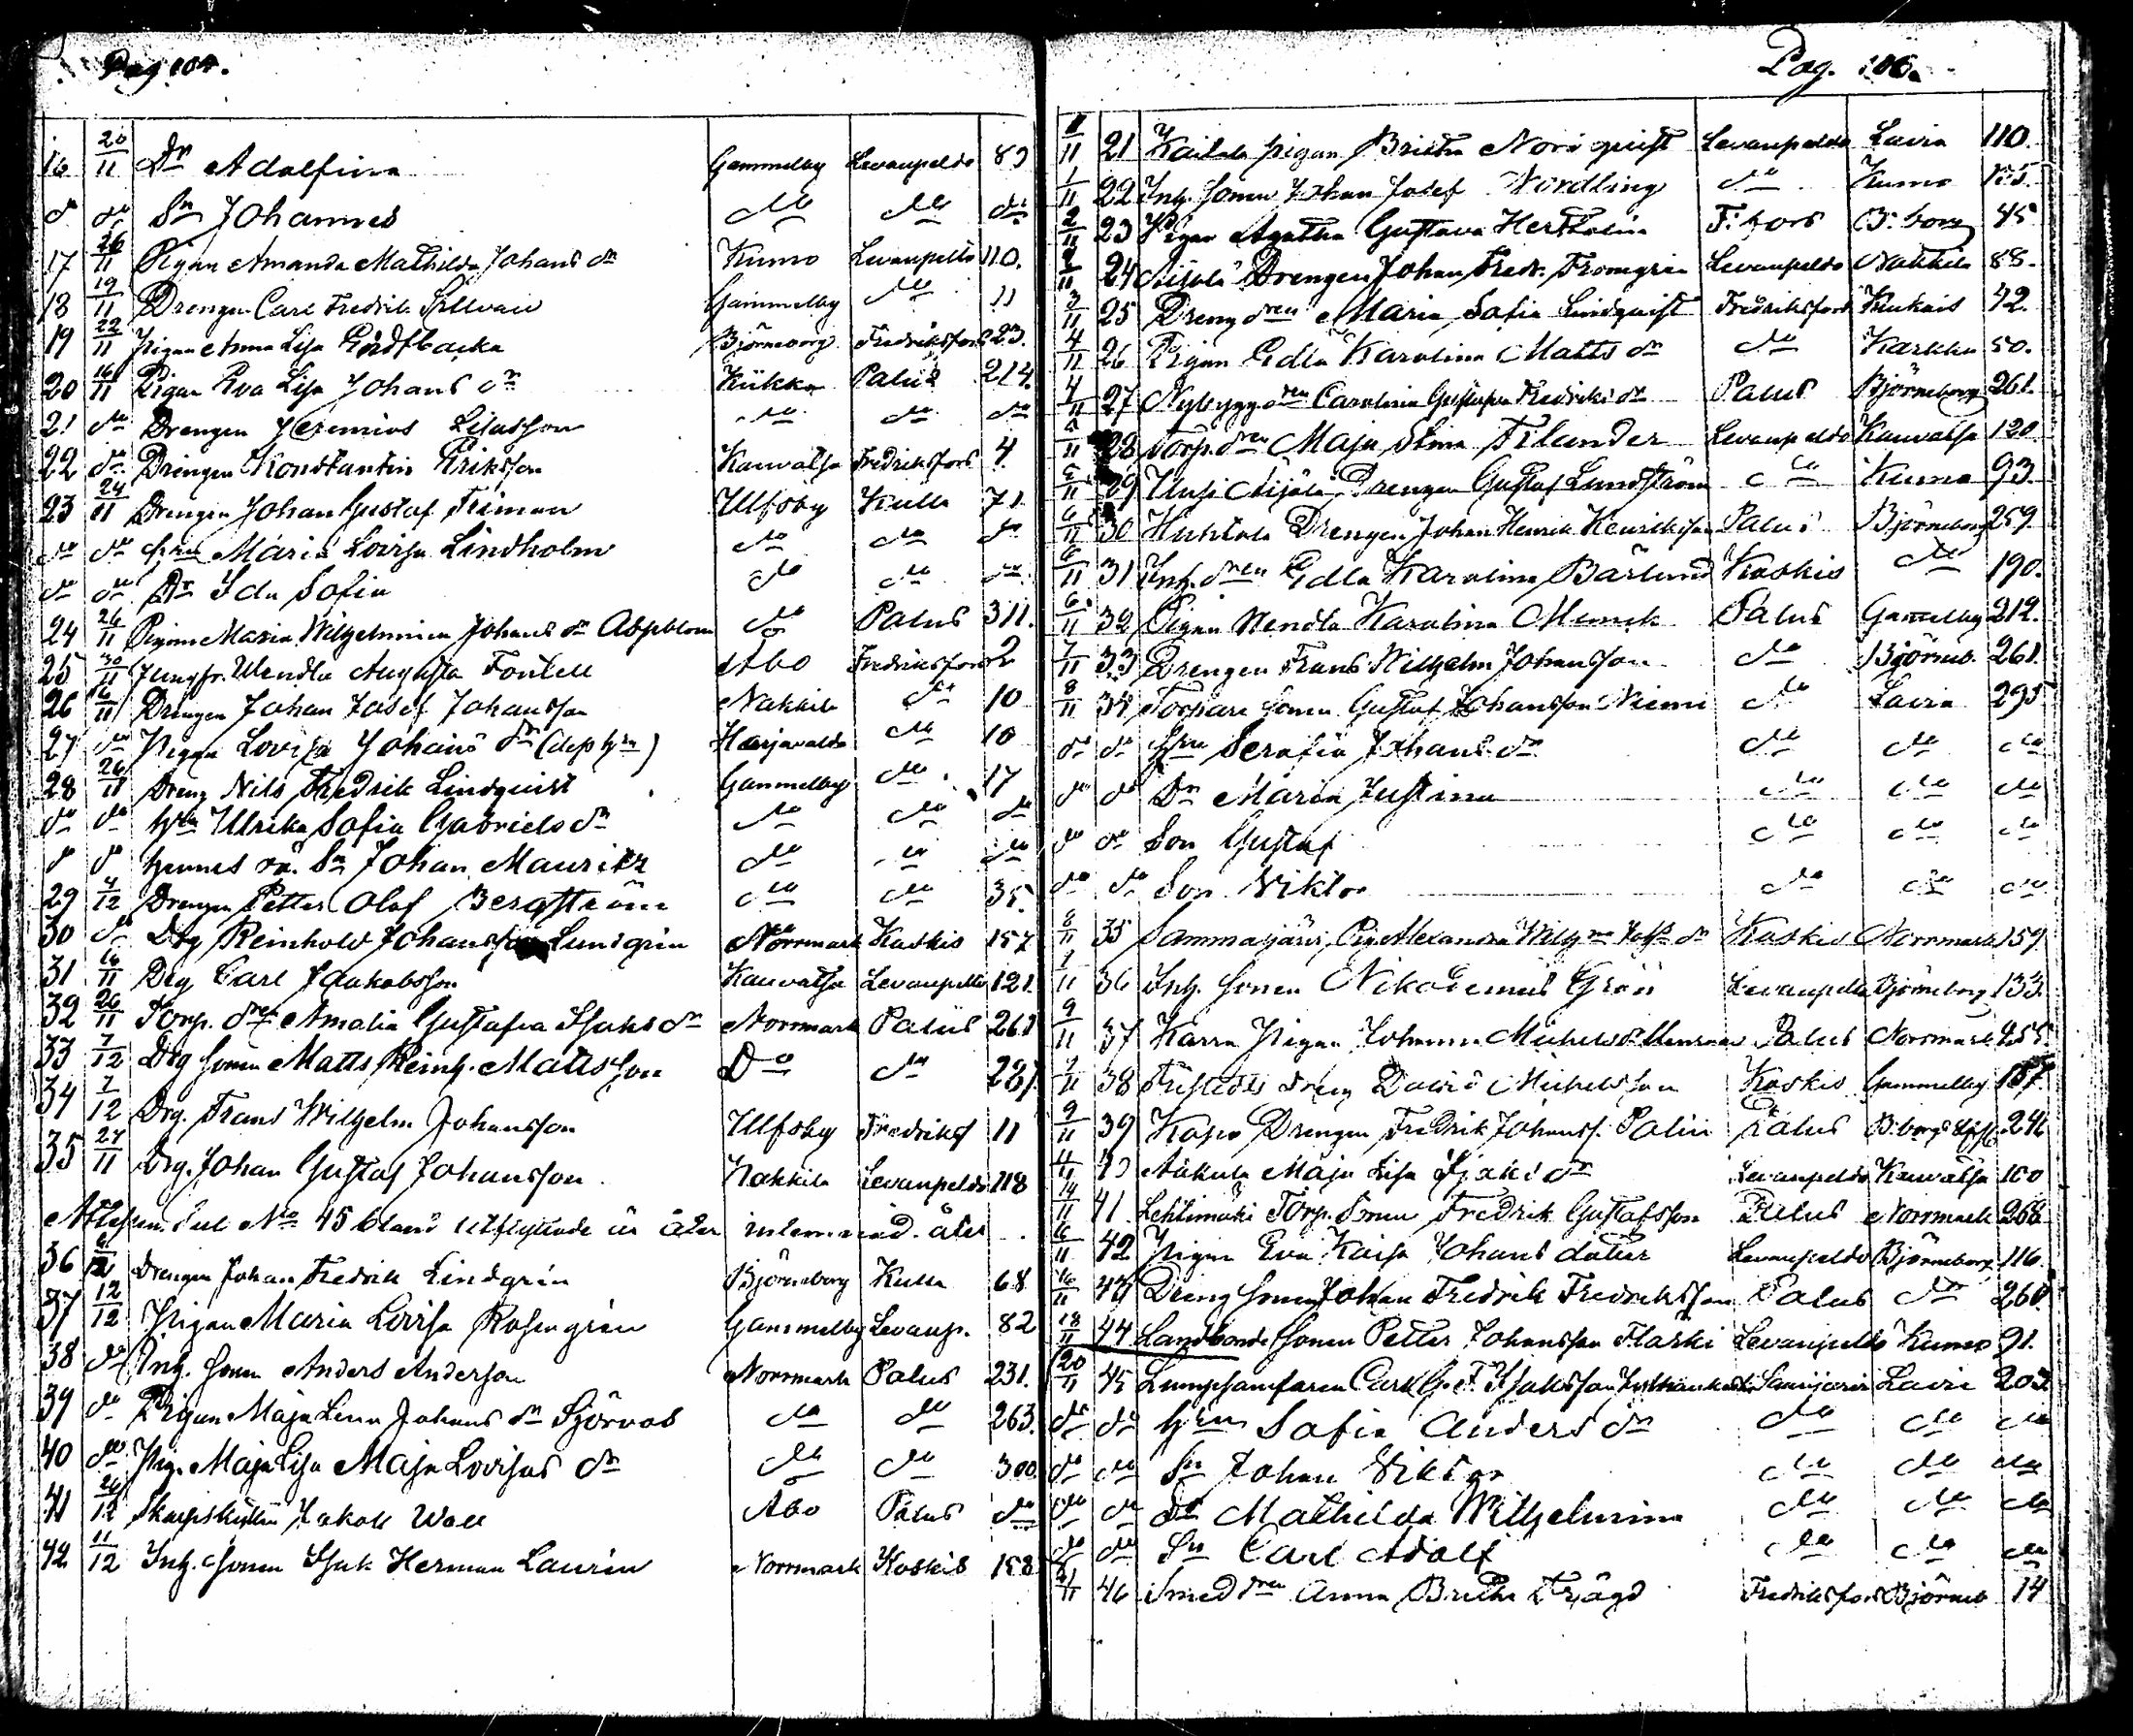 Pag 104.
16 20/11 Dr Adolfina Gammelby Levanpelto 89
do do Sn Johannes do do do
17 26/11 Pigan Amanda Mathilda Johans dr Kumo Levanpelto 110.
18 19/11 Drengen Carl Fredrik Gammelby do 11
19 22/11 Pigan Anna Lisa Björneborg Fredriksfors 23.
20 16/11 Pigan Eva Lisa Johans dr Kiikka Palus 214.
21 do Drengen Jeremias Lisasson do do do
22 do Drengen Konstantin Eriksson Kauvatsa Fredriksfors 4.
23 24/11 Drengen Johan Gustaf Friman Ulfsby Kulla 71
do do Hru Maria Lovisa Lindholm do do do
do do Dr Ida Sofia do do do
24 26/11 Pigan Maria Wilhelmina Johans dr Aspblom do Palus 311.
25 30/11 Jungfr. Wendla Augusta Fontell Åbo Fredriksfors 2
26 6/11 Drengen Johan Josef Johansson Nakkila do 10
27 do Pigan Lovisa Johans dr Harjavalta do 10
28 26/11 Dreng Nils Fredrik Lindqvist Gammelby do 17
do do Hru Ulrika Sofia Gabriels dr do do do
do do hennes oä. Sn Johan Mauritz do do do
29 4/12 Drengen Petter Olof Bergström do do 35.
30 do Drg Reinhold Johansson Lundgrén Norrmark Kaskis 157
31 16/11 Drg Carl Jaakobsson Kauvatsa Levanpelto 121.
32 26/11 Torp. dren Amalia Gustafva Isaks dr Norrmark Palus 261
33 7/12 Drg sonen Matts Reinh. Mattsson Do do 287.
34 7/12 Drg. Frans Wilhelm Johansson Ulfsby Fredriksf 11
35 27/11 Drg. Johan Gustaf Johansson Nakkila Levanpelto 118
Attesten sub No 45 bland utflyttade är åter
36 12 Drengen Johan Fredrik Lindgrén Björneborg Kulla 68
37 12/12 Pigan Maria Lovisa Rosengrén Gammelby Levanp. 82
38 do Inh. sonen Anders Andersson Norrmark Palus 231.
39 do Pigan Maja Lena Johans dr Sjöroos do do 263.
40 do Pig. Maja Lisa Maja Lovisas dr do do 300
41 26/12 Jakob Wall Åbo Palus do
42 11/12 Inh. sonen Isak Herman Laurén Norrmark Kaskis 158
Pag. 106.
11 21 Kaitala pigan Britha Norrqvist Levanpelto Lavia 110.
1/11 22 Inh. sonen Johan Josef Nordling do Kumo
2/11 23 Pigan Agatha Gustava F:fors B:borg 45
2/11 24 Drengen Johan Fredr. Levanpelto Nakkila 88.
3/11 25 Dreng dren Maria Sofia Lindqvist Fredriksfors 42.
4/11 26 Pigan Edla Karolina Matts dr do Karkku 50.
4/11 27 Nybygg dren Carolina Gustafva Fredriks dr Palus Björneborg 261.
11 28 Torp. dren Maja Stina Filander Levanpelto Kauvatsa 120
11 29 Uusi Äijälä Drengen Gustaf Lundström do Kumo 93.
6/11 30 Huhtala Drengen Johan Henrik Henriksson Palus Björneborg 259
6/11 31 Inh. dren Edla Karolina Bärlund Kaskis do 190.
6/11 32 Pigan Wendla Karolina Palus Gammelby 212.
7/11 33 Drengen Frans Wilhelm Johansson do Björneb. 261.
8/11 34 Torpare sonen Gustaf Johansson Niemi do Lavia 295
do do Hru Serafia Johans dr do do do
do do Dr Maria Justina do do do
do do Son Gustaf do do do
do do Son Viktor do do do
8/11 35 Sammaljärvi Pig Alexandra Kaskis Norrmark 159
11 36 Inh. sonen Nikodemus Grön Levanpelto Björneborg 133.
9/11 37 Karra Pigan Johanna Michels dr Palus Norrmark
11 38 Dreng David Michelsson Kaskis Gammelby 187
9/11 39 Drengen Fredrik Johanss. Palin Palus
11 Maja Lisa Isaks dr Levanpelto Kauvatsa 100
14/11 41. Lehtimäki Torp. sonen Fredrik Gustafsson Palus Norrmark 268
16/11 42 Pigan Eva Kaisa Johans dotter Levanpelto Björneborg 116.
16/11 Dreng sonen Johan Fredrik Fredriksson Palus do 260
18/11 44 Landbonde sonen Petter Johansson Levanpelto Kumo 91.
20/11 45 Lumpsamlaren Carl Lavia 203.
do do Hru Sofia Anders dr do do do
do do Sn Johan Viktor do do do
do do Dr Mathilda Wilhelmina do do do
do do Sn Carl Adolf do do do
11 46 Smed dren Anna Britha Frägd Fredriksfors Björneb 14